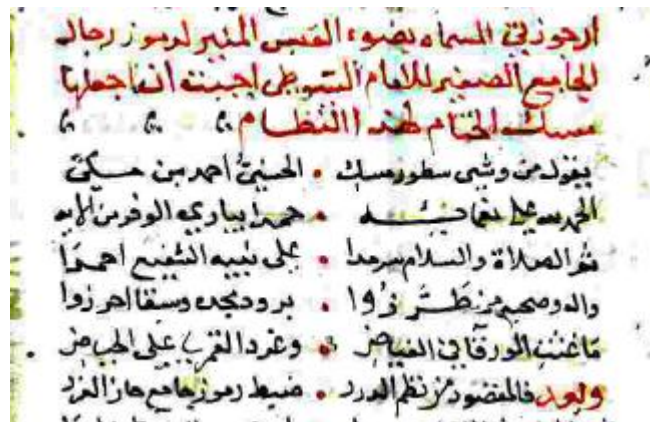 ارجوزتي المسماه بضوء القبس المنير لرموز رجال
الجامع الصغير للامام السيوطي احببت ان اجعلها
مسك الختام لهذا النظام
يقول من وشى سطور مسك • الحسني احمد بن
الحمد لله على نعمائه • حمدا يباري الوفر من
ثم الصلاة والسلام سرمدا • على نبيه الشفيع احمدا
واله وصحبه من طرزوا • برود مجده وسبقا احرزوا
ما غنت الورقا في الغياض • وغرد القمري على الحياض
وبعد فالمقصود من نظم الدرر • ضبط رموز جامع حاز الغرر